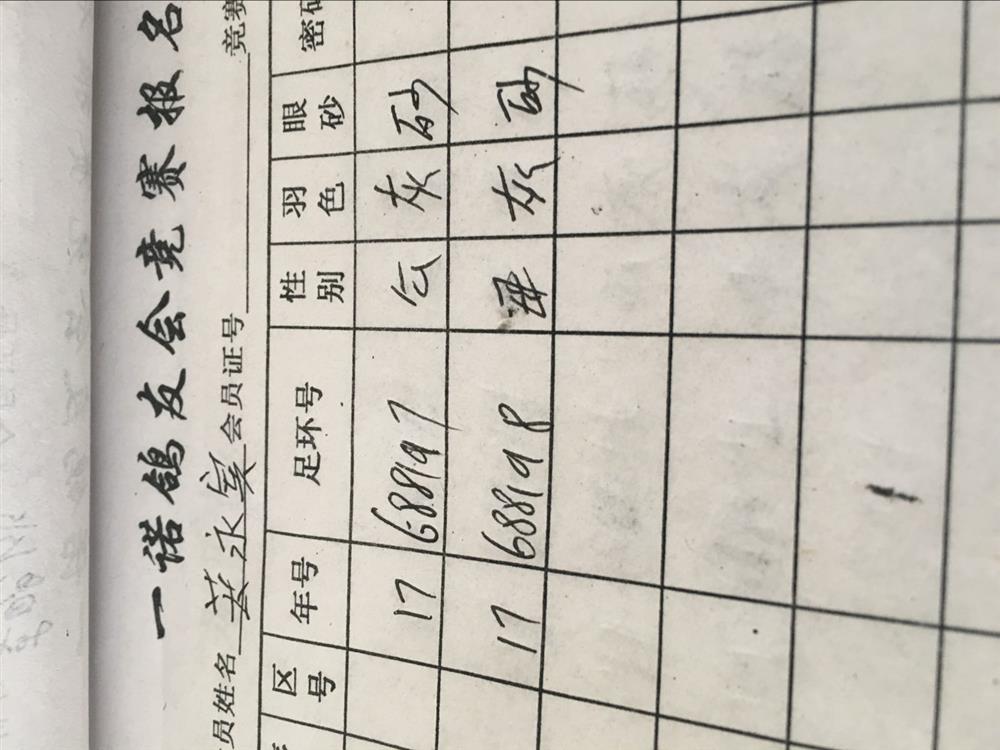 一诺鸽友会竞赛报名
员姓名 永宝 会员证号 竞赛
区号 年号 足环号 性别 羽色 眼砂 密码
17 688197 公 灰 砂
17 688198 母 灰 砂